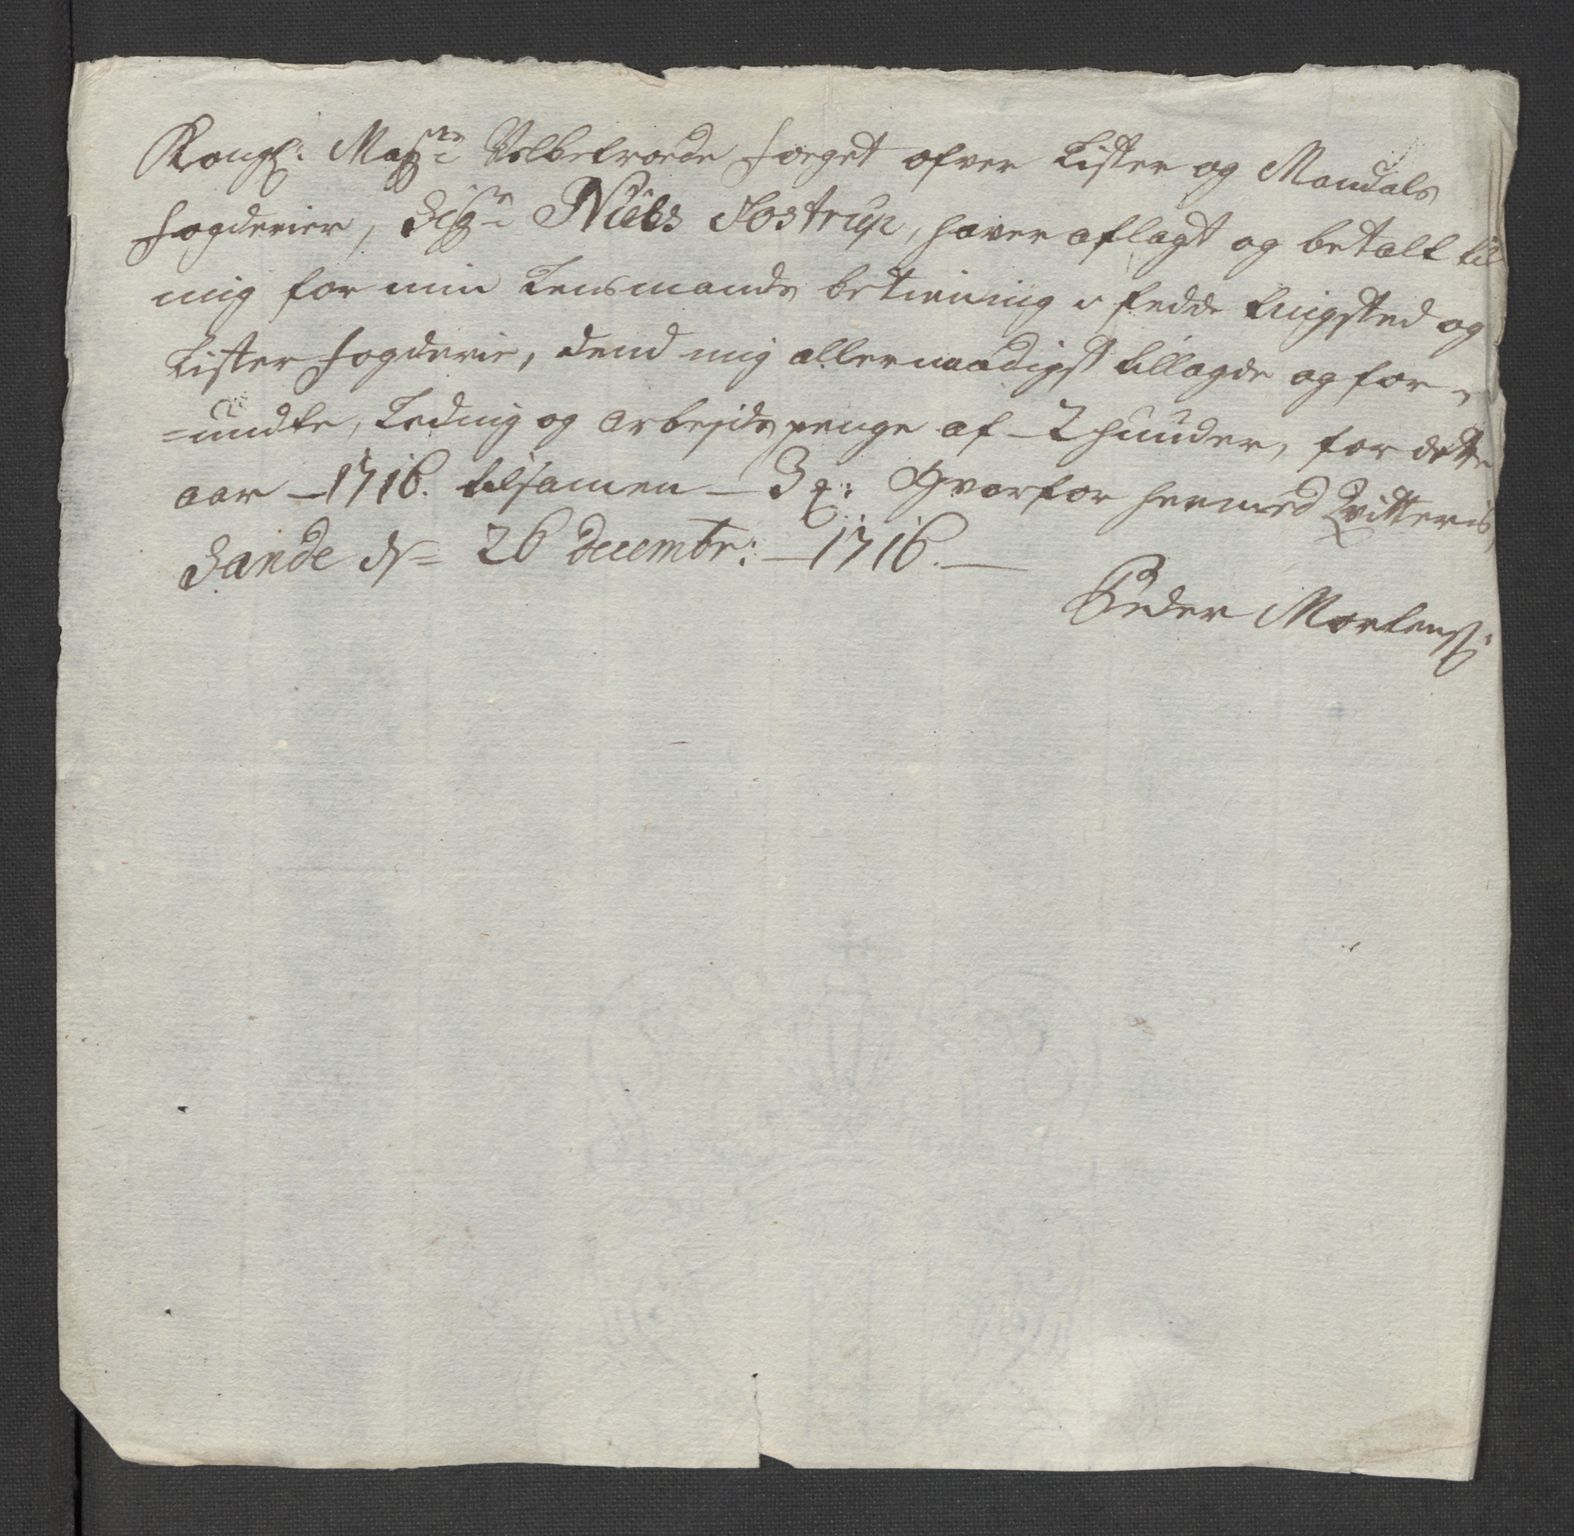 Kongl: Maÿtz Velbetroede foeget ofver Lister og Mandals
fogderier, Sigr Niels Jostrup, haver aflagt og betalt til
mig for min Lensmands betiening i fedde tingsted og
Lister fogderie, dend mig allernaadigst tillagde og for-
=undte, Leding og arbejds penge af 2 huuder, for dette
aar 1716. tilsamen 3 Hvorfor hermed Qvitteris,
Sande ds 26 decembr: 1716.
Peder Mortens: